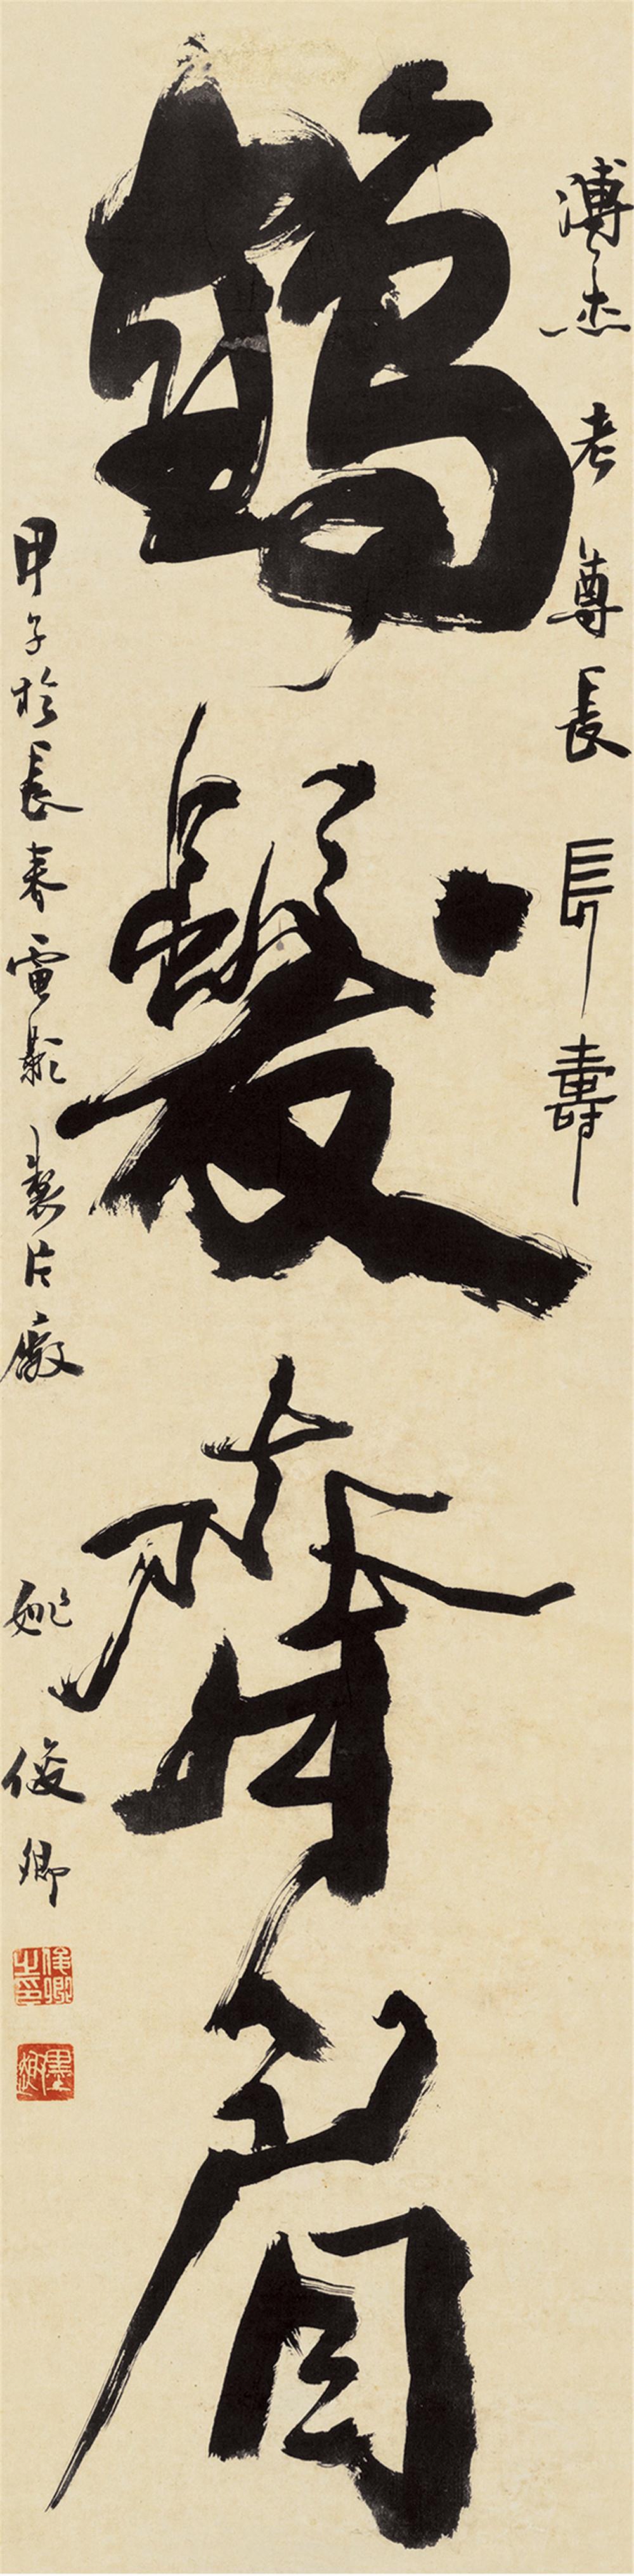 溥杰老尊長長壽
鶴髮齊眉
甲子於長春電影製片廠
姚俊卿
俊卿之印
墨趣